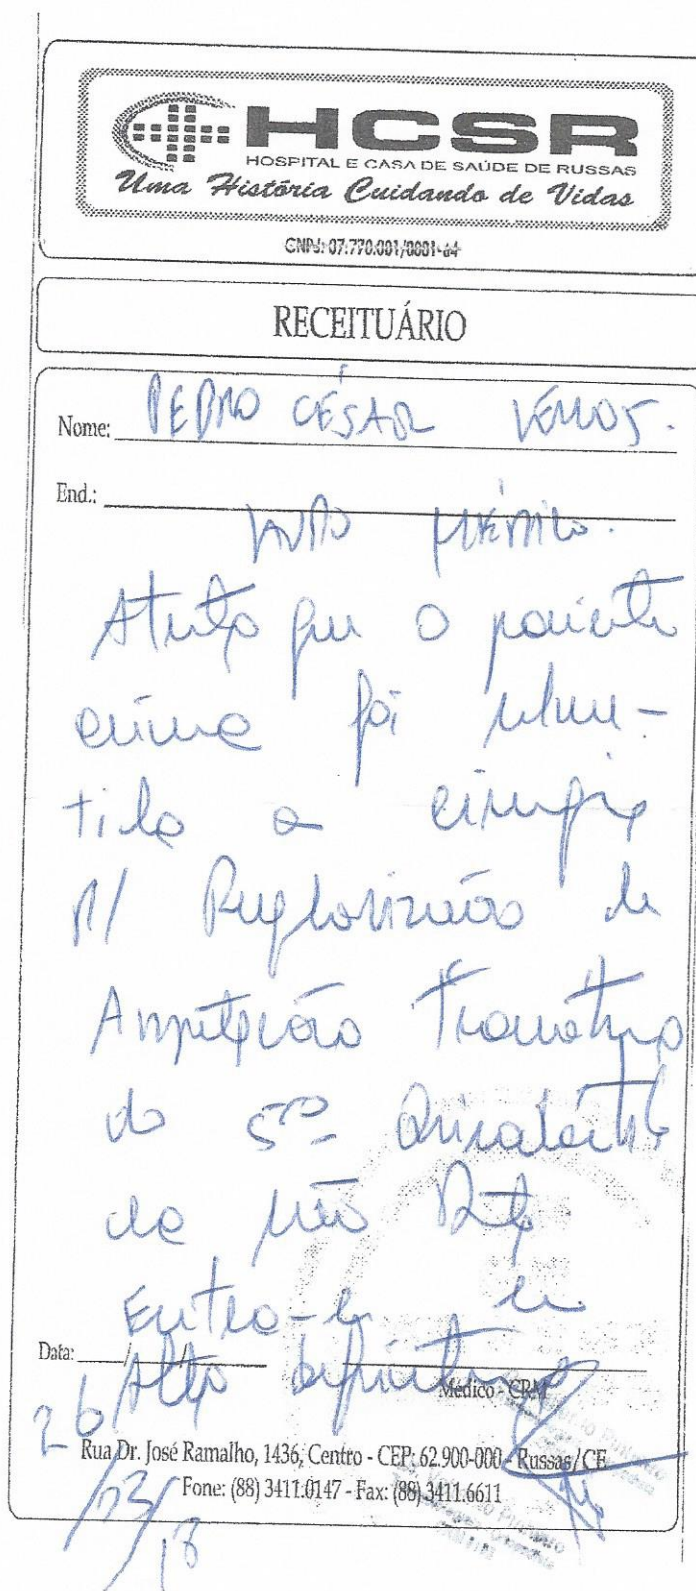 HCSR
HOSPITAL E CASA DE SAÚDE DE RUSSAS
Uma História Cuidando de Vidas
CNPJ: 07.770.001/0001-64
RECEITUÁRIO
Nome: PEDRO CÉSAR
End.:
LAUDO MÉDICO.
Atesto que o paciente
acima foi subme-
tido a cirurgia
p/ Regularização de
Amputação Traumática
do 5º Quirodáctilo
da mão Dta
Encontra-se em
Alta definitiva
Data: / /
Médico - CRM
26
/03/
18
Rua Dr. José Ramalho, 1436, Centro - CEP: 62.900-000 - Russas/CE
Fone: (88) 3411.0147 - Fax: (88) 3411.6611